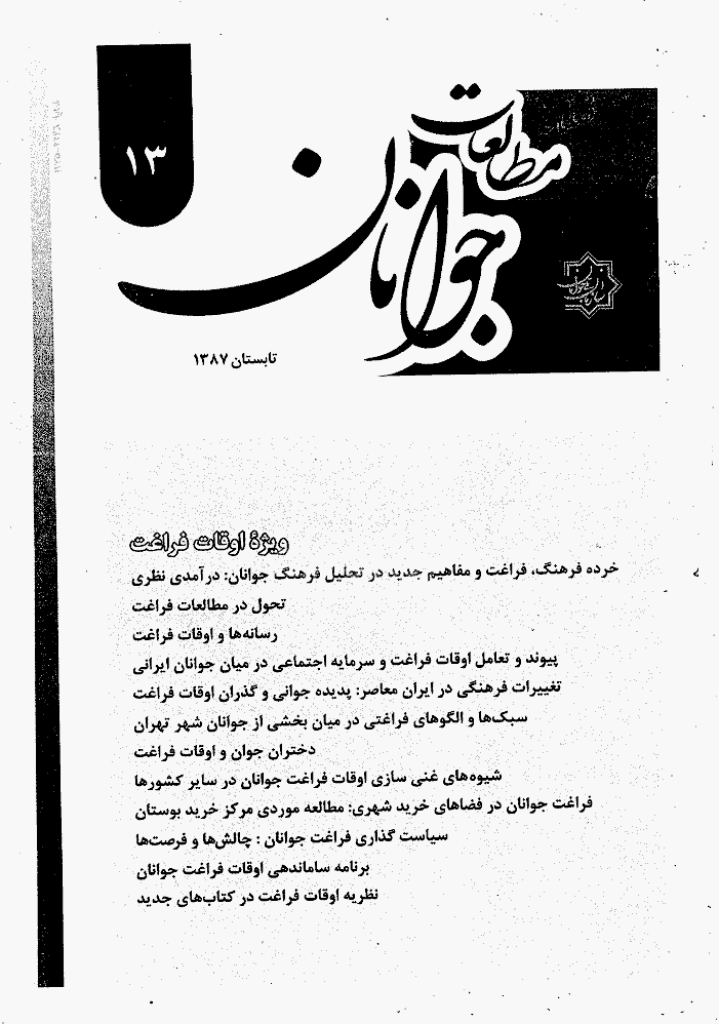 ۱۳
مطالعات
جوانان
تابستان ۱۳۸۷
ویژهٔ اوقات فراغت
خرده فرهنگ، فراغت و مفاهیم جدید در تحلیل فرهنگ جوانان: درآمدی نظری
تحول در مطالعات فراغت
رسانه‌ها و اوقات فراغت
پیوند و تعامل اوقات فراغت و سرمایه اجتماعی در میان جوانان ایرانی
تغییرات فرهنگی در ایران معاصر: پدیده جوانی و گذران اوقات فراغت
سبک‌ها و الگوهای فراغتی در میان بخشی از جوانان شهر تهران
دختران جوان و اوقات فراغت
شیوه‌های غنی سازی اوقات فراغت جوانان در سایر کشورها
فراغت جوانان در فضاهای خرید شهری: مطالعه موردی مرکز خرید بوستان
سیاست گذاری فراغت جوانان : چالش‌ها و فرصت‌ها
برنامه ساماندهی اوقات فراغت جوانان
نظریه اوقات فراغت در کتاب‌های جدید